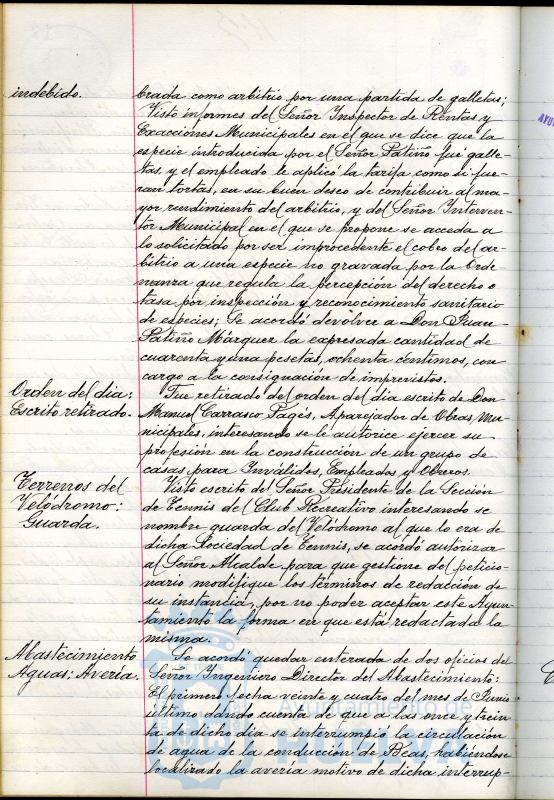 indebido.
brada como arbitrio por una partida de galletas;
Visto informes del Señor Inspector de Rentas y
Exacciones Municipales en el que se dice que la
especie introducida por el Señor Patiño fué galle-
tas, y el empleado le aplicó la tarifa como si fue-
ran tortas, en su buen deseo de contribuir al ma-
yor rendimiento del arbitrio, y del Señor Interven-
tor Municipal en el que se propone se acceda a
lo solicitado por ser improcedente el cobro del ar-
bitrio a una especie no gravada por la Orde-
nanza que regula la percepción del derecho o
tasa por inspección y reconocimiento sanitario
de especies; Se acordó devolver a Don Juan
Patiño Márquez la expresada cantidad de
cuarenta y una pesetas, ochenta céntimos, con
cargo a la consignación de imprevistos.
Orden del dia:
Escrito retirado.
Fue retirado del orden del día escrito de Don
Manuel Carrasco Pagés, Aparejador de Obras Mu-
nicipales, interesando se le autorice ejercer su
profesión en la construcción de un grupo de
casas para Inválidos, Empleados y Obreros.
Terrenos del
Velódromo:
Guarda.
Visto escrito del Señor Presidente de la Sección
de Tennis del Club Recreativo interesando se
nombre guarda del Velódromo al que lo era de
dicha Sociedad de Tennis, se acordó autorizar
al Señor Alcalde para que gestione del peticio-
nario modifique los términos de redacción de
su instancia, por no poder aceptar este Ayun-
tamiento la forma en que está redactada la
misma.
Abastecimiento
Aguas: Avería.
Se acordó quedar enterada de dos oficios del
Señor Ingeniero Director del Abastecimiento:
El primero fecha veinte y cuatro del mes de Junio
último dando cuenta de que a las once y trein-
ta de dicho día se interrumpió la circulación
de agua de la conducción de Beas, habiéndose
localizado la avería motivo de dicha interrup-
Ayuntamiento de